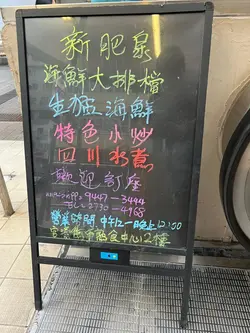 新肥泉
海鮮大排檔
生猛海鮮
特色小炒
四川水煮
歡迎訂座
9447-3444
2730-4968
營業時間 中午12-晚上12:00
熟食中心2樓